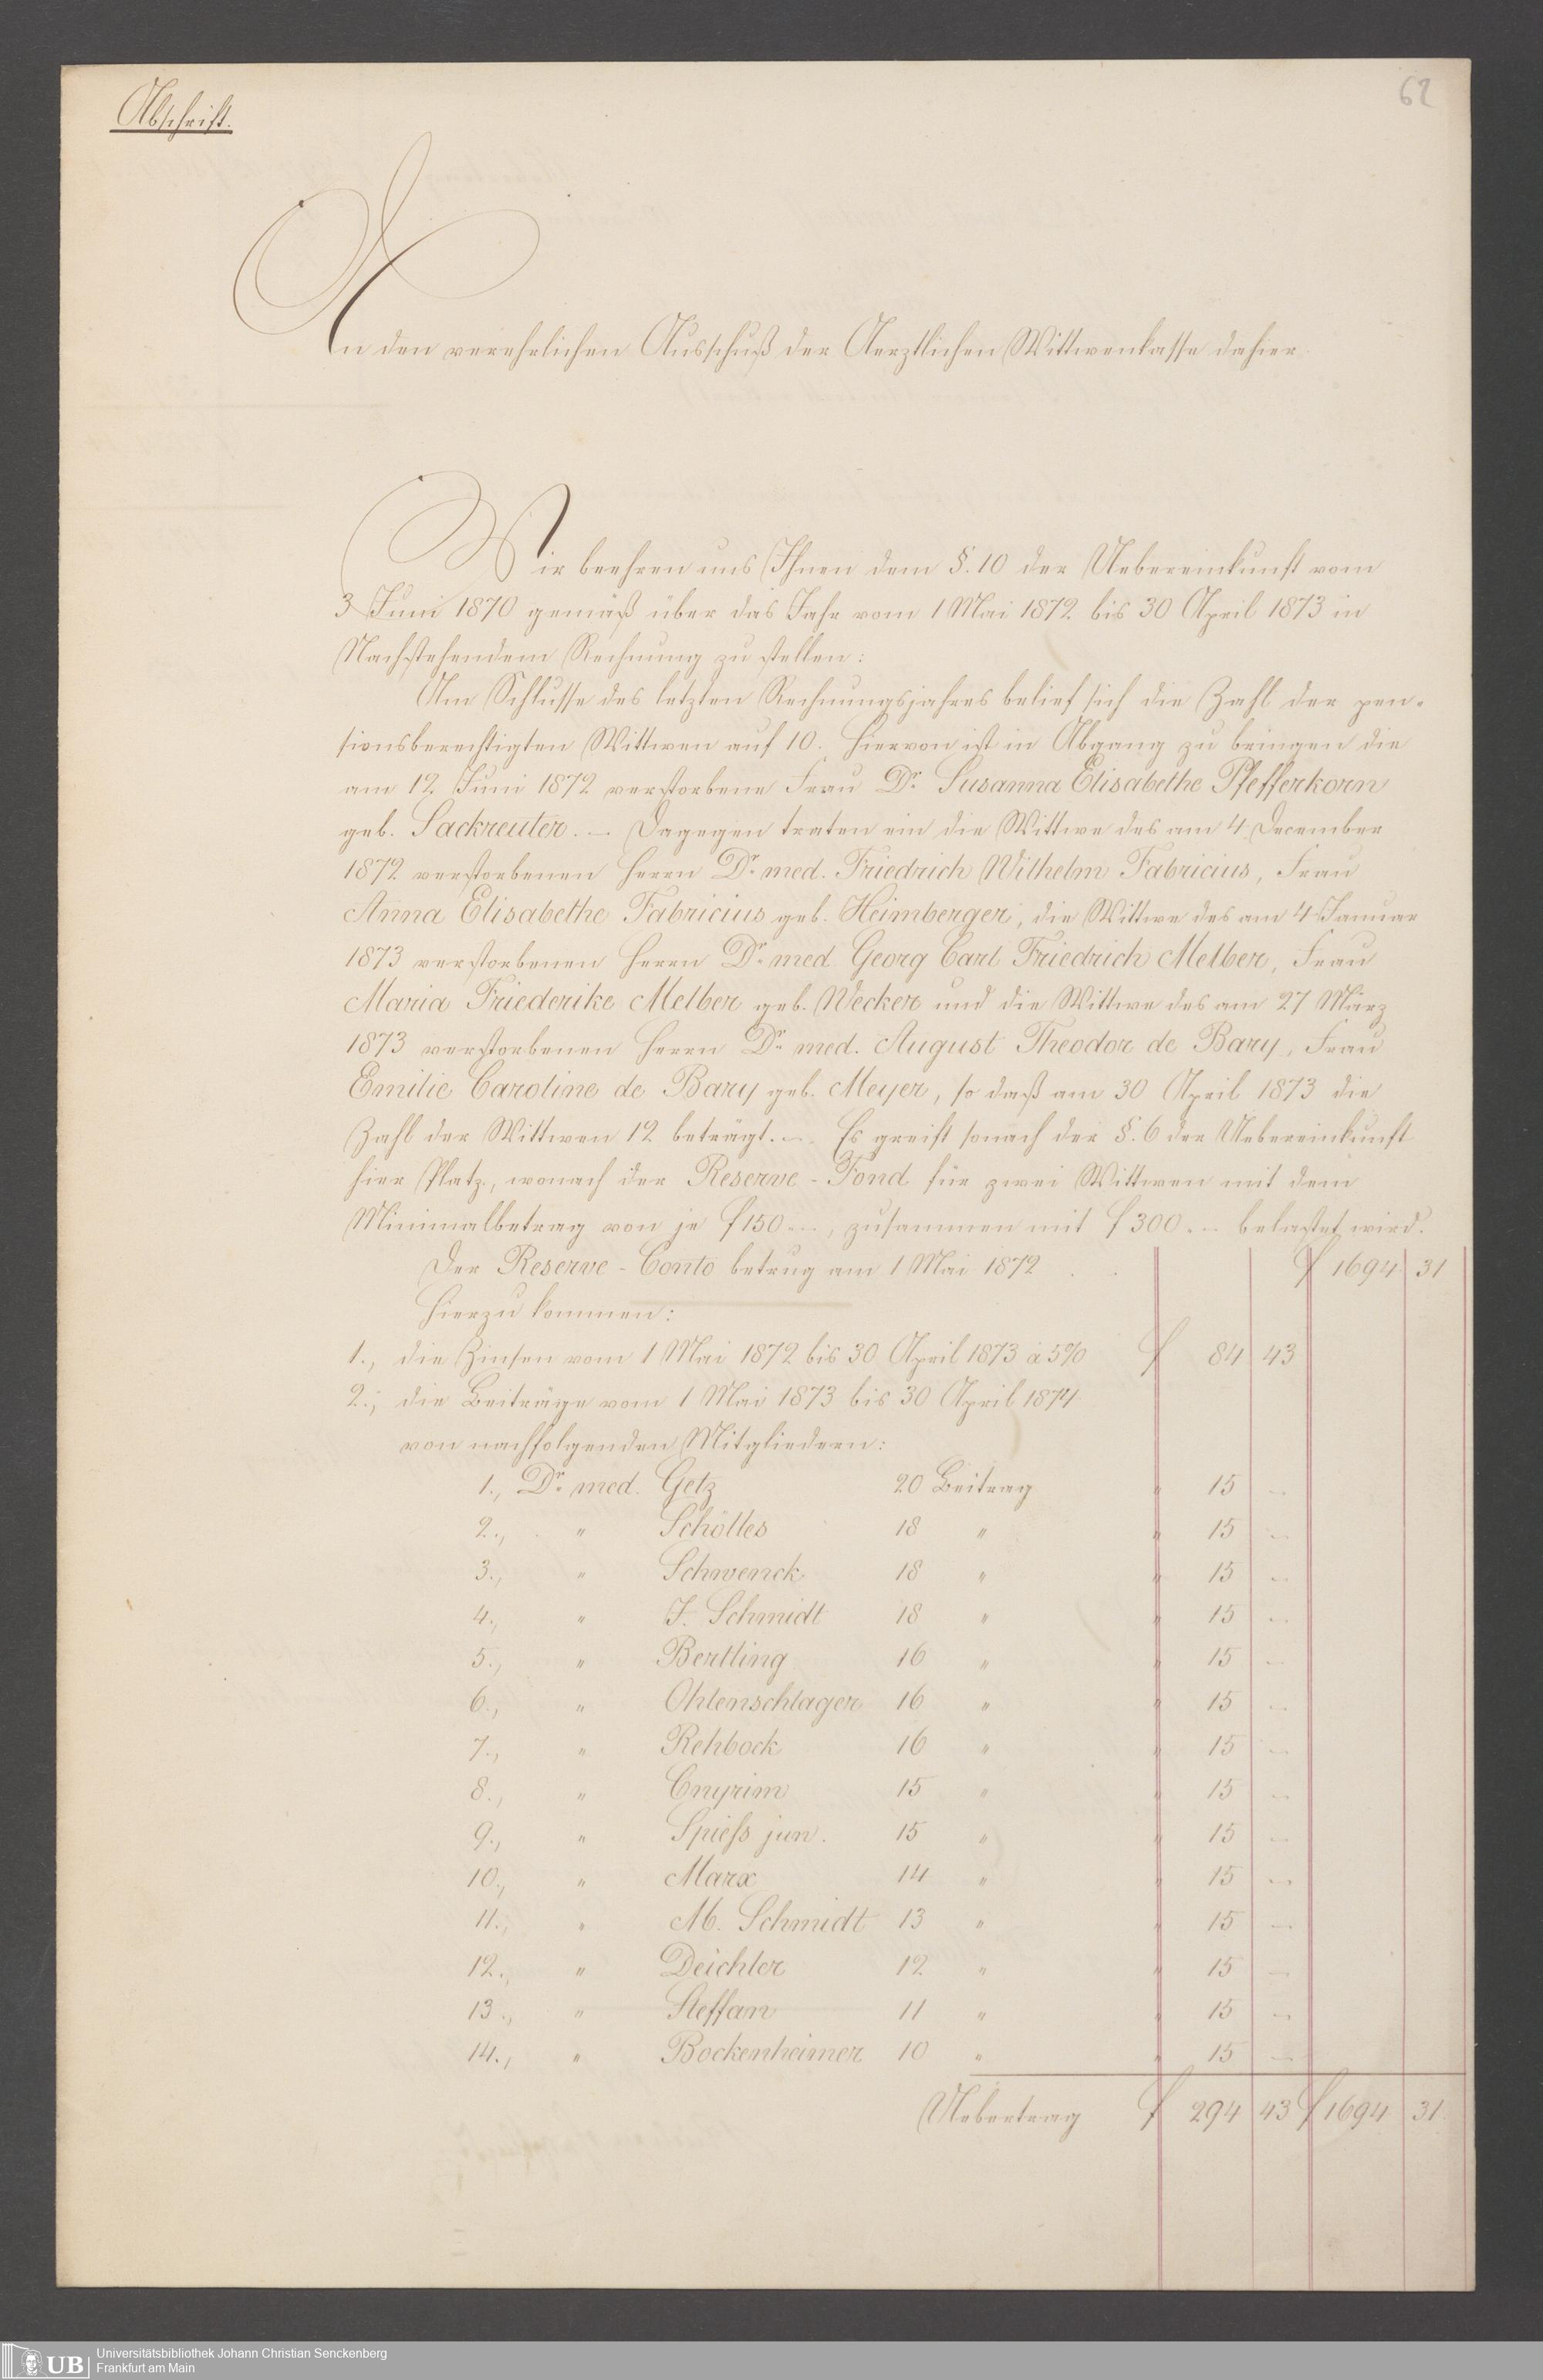 Abschrift.
62
An den verehrlichen Ausschuß der Aerztlichen Wittwenkasse dahier.
Wir beehren uns Ihnen dem §. 10 der Uebereinkunft vom
3 Juni 1870 gemäß über das Jahr vom 1 Mai 1872 bis 30 April 1873 in
Nachstehendem Rechnung zu stellen:
Am Schlusse des letzten Rechnungsjahres belief sich die Zahl der pen-
sionsberechtigten Wittwen auf 10. Hiervon ist in Abgang zu bringen die
am 12 Juni 1872 verstorbene Frau Dr. Susanna Elisabethe Pfefferkorn
geb. Sackreuter. — Dagegen traten ein die Wittwe des am 4 December
1872 verstorbenen Herrn Dr. med. Friedrich Wilhelm Fabricius, Frau
Anna Elisabethe Fabricius geb. Heimberger, die Wittwe des am 4 Januar
1873 verstorbenen Herrn Dr. med Georg Carl Friedrich Melber, Frau
Maria Friederike Melber geb. Wecker und die Wittwe des am 27 März
1873 verstorbenen Herrn Dr. med. August Theodor de Bary, Frau
Emilie Caroline de Bary geb. Meyer, so daß am 30 April 1873 die
Zahl der Wittwen 12 beträgt. — Es greift sonach der §. 6 der Uebereinkunft
hier Platz, wonach der Reserve-Fond für zwei Wittwen mit dem
Minimalbetrag von je f 150 —, zusammen mit f 300. — belastet wird.
Der Reserve-Conto betrug am 1 Mai 1872 . . f 1694 31
Hierzu kommen:
1., die Zinsen vom 1 Mai 1872 bis 30 April 1873 à 5% f 84 43
2., die Beiträge vom 1 Mai 1873 bis 30 April 1874
von nachfolgenden Mitgliedern:
1., Dr. med. Getz 20 Beitrag " 15 —
2., " Schölles 18 " " 15 —
3., " Schwenck 18 " " 15 —
4., " J. Schmidt 18 " " 15 —
5., " Bertling 16 " " 15 —
6., " Ohlenschlager 16 " " 15 —
7., " Rehbock 16 " " 15 —
8., " Cnyrim 15 " " 15 —
9., " Spiess jun. 15 " " 15 —
10., " Marx 14 " " 15 —
11., " M. Schmidt 13 " " 15 —
12., " Deichler 12 " " 15 —
13., " Steffan 11 " " 15 —
14., " Bockenheimer 10 " " 15 —
Uebertrag f 294 43 f 1694 31
UB
Universitätsbibliothek Johann Christian Senckenberg
Frankfurt am Main